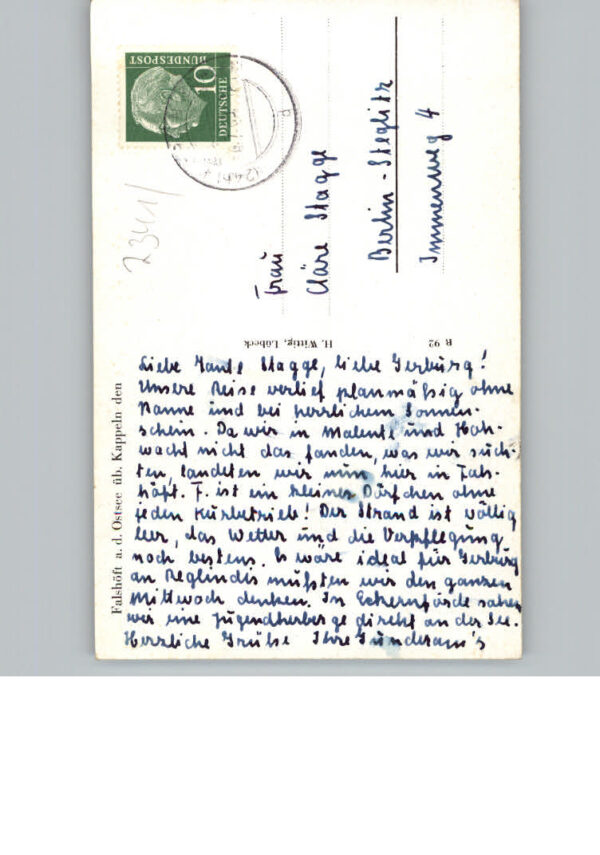 DEUTSCHE
BUNDESPOST
10
2341/
Frau
Cläre Stagge
Berlin - Steglitz
Immenweg 4
H. Wittig, Lübeck
R 92
Falshöft a. d. Ostsee üb. Kappeln den
Liebe Tante Stagge, liebe Gerburg!
Unsere Reise verlief planmäßig ohne
Panne und bei herrlichem Sonnen-
schein. Da wir in Malente und Hoh-
wacht nicht das fanden, was wir such-
ten, landeten wir nun hier in Fals-
höft. F. ist ein kleines Dörfchen ohne
jeden Kurbetrieb! Der Strand ist völlig
leer, das Wetter und die Verpflegung
noch bestens. Es wäre ideal für Gerburg
an Reglindis mußten wir den ganzen
Mittwoch denken. In Eckernförde sahen
wir eine Jugendherberge direkt an der See.
Herzliche Grüße Ihre Gunderam's